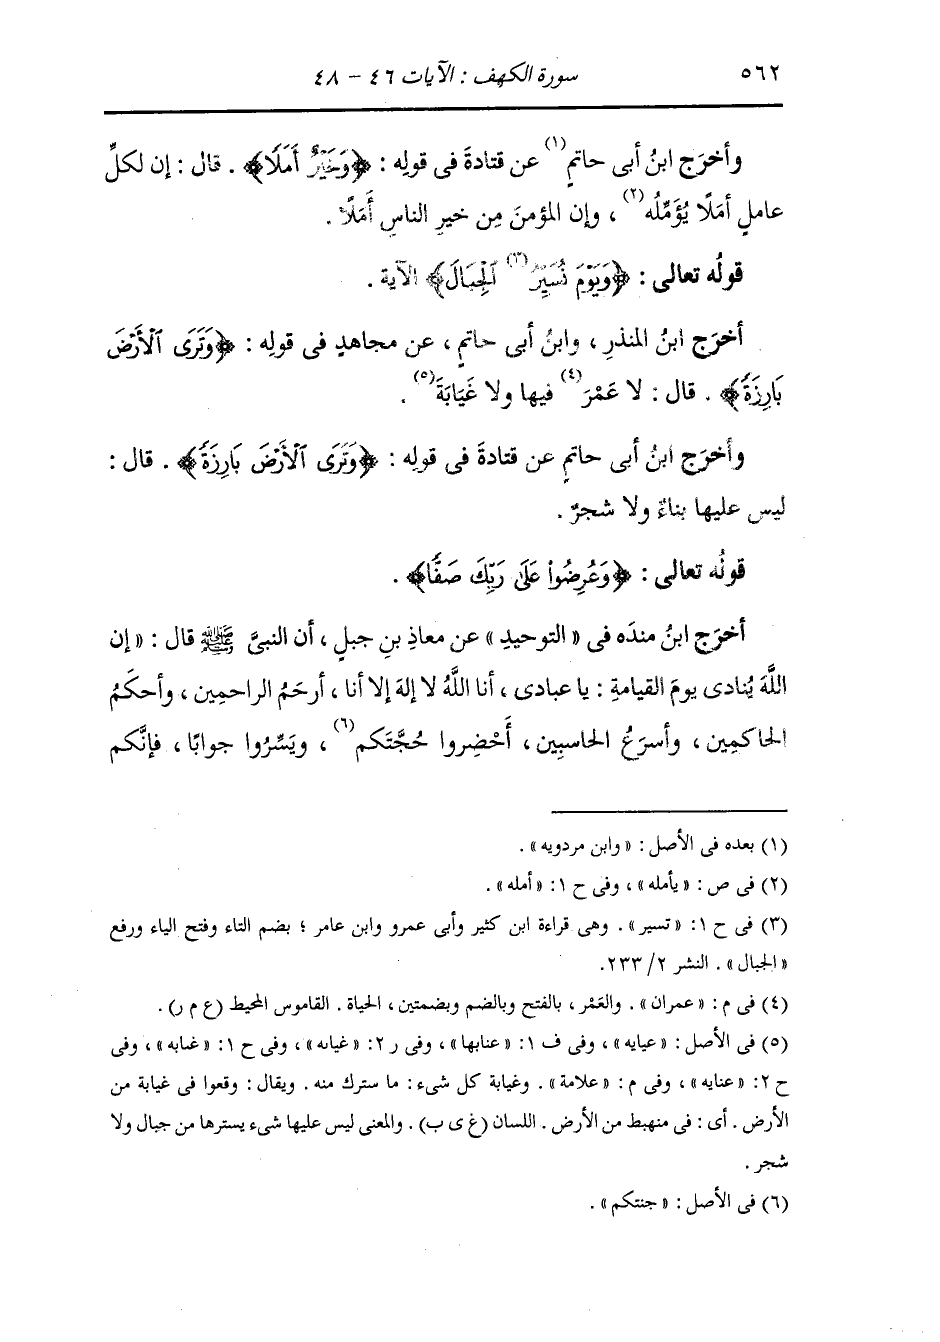 ٥٦٢ سورة الكهف : الآيات ٤٦ - ٤٨
وأخرَج ابنُ أبى حاتمٍ(١) عن قتادةَ فى قولِه : ﴿وَخَيْرٌ أَمَلًا﴾ . قال : إن لكلِّ
عاملٍ أمَلًا يُؤَمِّلُه(٢) ، وإن المؤمنَ مِن خيرِ الناسِ أَمَلًا .
قولُه تعالى : ﴿وَيَوْمَ نُسَيِّرُ(٣) ٱلْجِبَالَ﴾ الآية .
أخرَج ابنُ المنذرِ ، وابنُ أبى حاتمٍ ، عن مجاهدٍ فى قولِه : ﴿وَتَرَى ٱلْأَرْضَ
بَارِزَةً﴾ . قال : لا عَمْرَ(٤) فيها ولا غَيَابَةَ(٥) .
وأخرَج ابنُ أبى حاتمٍ عن قتادةَ فى قولِه : ﴿وَتَرَى ٱلْأَرْضَ بَارِزَةً﴾ . قال :
ليس عليها بناءٌ ولا شجرٌ .
قولُه تعالى : ﴿وَعُرِضُوا۟ عَلَىٰ رَبِّكَ صَفًّا﴾ .
أخرَج ابنُ مندَه فى « التوحيدِ » عن معاذِ بنِ جبلٍ ، أن النبىَّ ﷺ قال : « إن
اللَّهَ يُنادى يومَ القيامةِ : يا عبادى ، أنا اللَّهُ لا إلهَ إلا أنا ، أرحَمُ الراحمِين ، وأحكَمُ
الحاكمِين ، وأسرَعُ الحاسبِين ، أَحْضِروا حُجَّتَكم(٦) ، ويَسِّرُوا جوابًا ، فإنَّكم
(١) بعده فى الأصل : « وابن مردويه » .
(٢) فى ص : « يأمله » ، وفى ح ١ : « أمله » .
(٣) فى ح ١ : « تسير » . وهى قراءة ابن كثير وأبى عمرو وابن عامر ؛ بضم التاء وفتح الياء ورفع
« الجبال » . النشر ٢/ ٢٣٣.
(٤) فى م : « عمران » . والعَمْر ، بالفتح وبالضم وبضمتين ، الحياة . القاموس المحيط (ع م ر) .
(٥) فى الأصل : « عيايه » ، وفى ف ١ : « عنابها » ، وفى ر ٢ : « غيانه » ، وفى ح ١ : « غىابه » ، وفى
ح ٢ : « عنايه » ، وفى م : « علامة » . وغيابة كل شىء : ما سترك منه . ويقال : وقعوا فى غيابة من
الأرض . أى : فى منهبط من الأرض . اللسان (غ ى ب) . والمعنى ليس عليها شىء يسترها من جبال ولا
شجر .
(٦) فى الأصل : « جنتكم » .